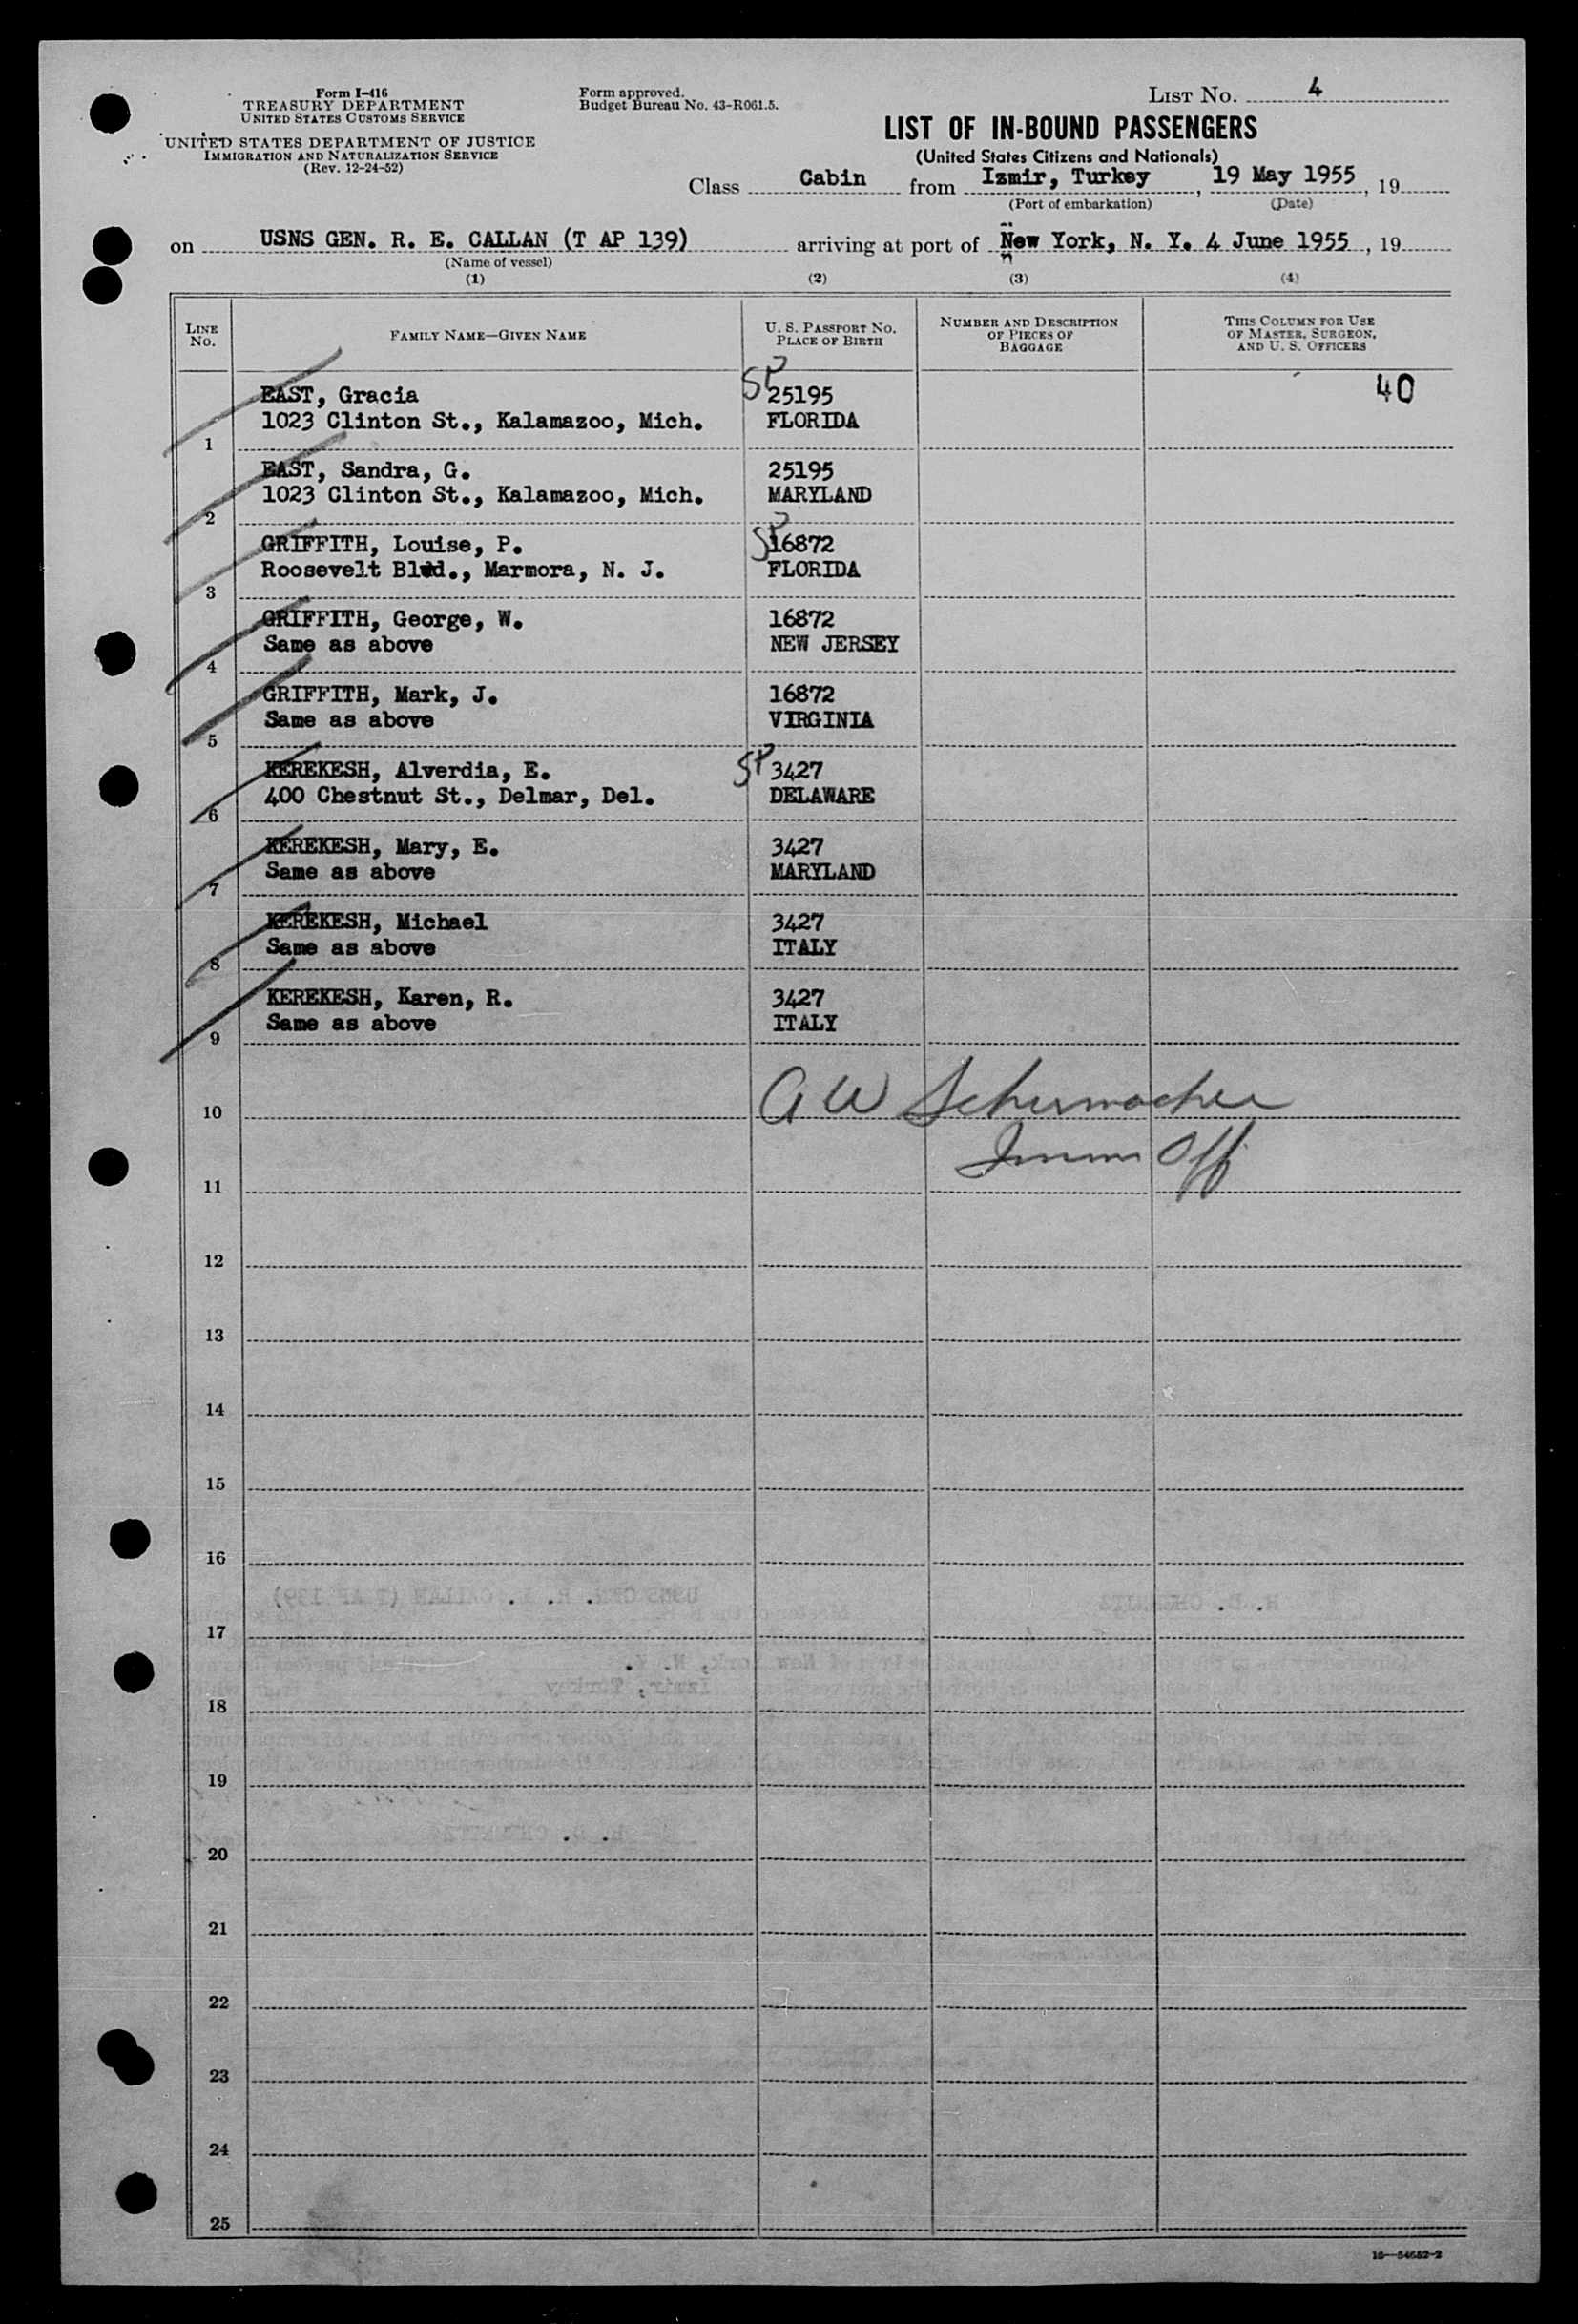 Form I-416
TREASURY DEPARTMENT
UNITED STATES CUSTOMS SERVICE
UNITED STATES DEPARTMENT OF JUSTICE
IMMIGRATION AND NATURALIZATION SERVICE
(Rev. 12-24-52)
Form approved.
Budget Bureau No. 43-R061.5.
LIST No. 4
LIST OF IN-BOUND PASSENGERS
(United States Citizens and Nationals)
Class Cabin from Izmir, Turkey, 19 May 1955, 19
(Port of embarkation) (Date)
on USNS GEN. R. E. CALLAN (T AP 139) arriving at port of New York, N. Y. 4 June 1955, 19
(Name of vessel)
(1) (2) (3) (4)
LINE No.
FAMILY NAME—GIVEN NAME
U. S. PASSPORT No.
PLACE OF BIRTH
NUMBER AND DESCRIPTION
OF PIECES OF
BAGGAGE
THIS COLUMN FOR USE
OF MASTER, SURGEON,
AND U. S. OFFICERS
EAST, Gracia SP 25195 40
1023 Clinton St., Kalamazoo, Mich. FLORIDA
1
EAST, Sandra, G. 25195
1023 Clinton St., Kalamazoo, Mich. MARYLAND
2
GRIFFITH, Louise, P. SP 16872
Roosevelt Blvd., Marmora, N. J. FLORIDA
3
GRIFFITH, George, W. 16872
Same as above NEW JERSEY
4
GRIFFITH, Mark, J. 16872
Same as above VIRGINIA
5
KEREKESH, Alverdia, E. SP 3427
400 Chestnut St., Delmar, Del. DELAWARE
6
KEREKESH, Mary, E. 3427
Same as above MARYLAND
7
KEREKESH, Michael 3427
Same as above ITALY
8
KEREKESH, Karen, R. 3427
Same as above ITALY
9
A W Schumacher
10
Imm Off
11
12
13
14
15
16
17
18
19
20
21
22
23
24
25
16—54652-2